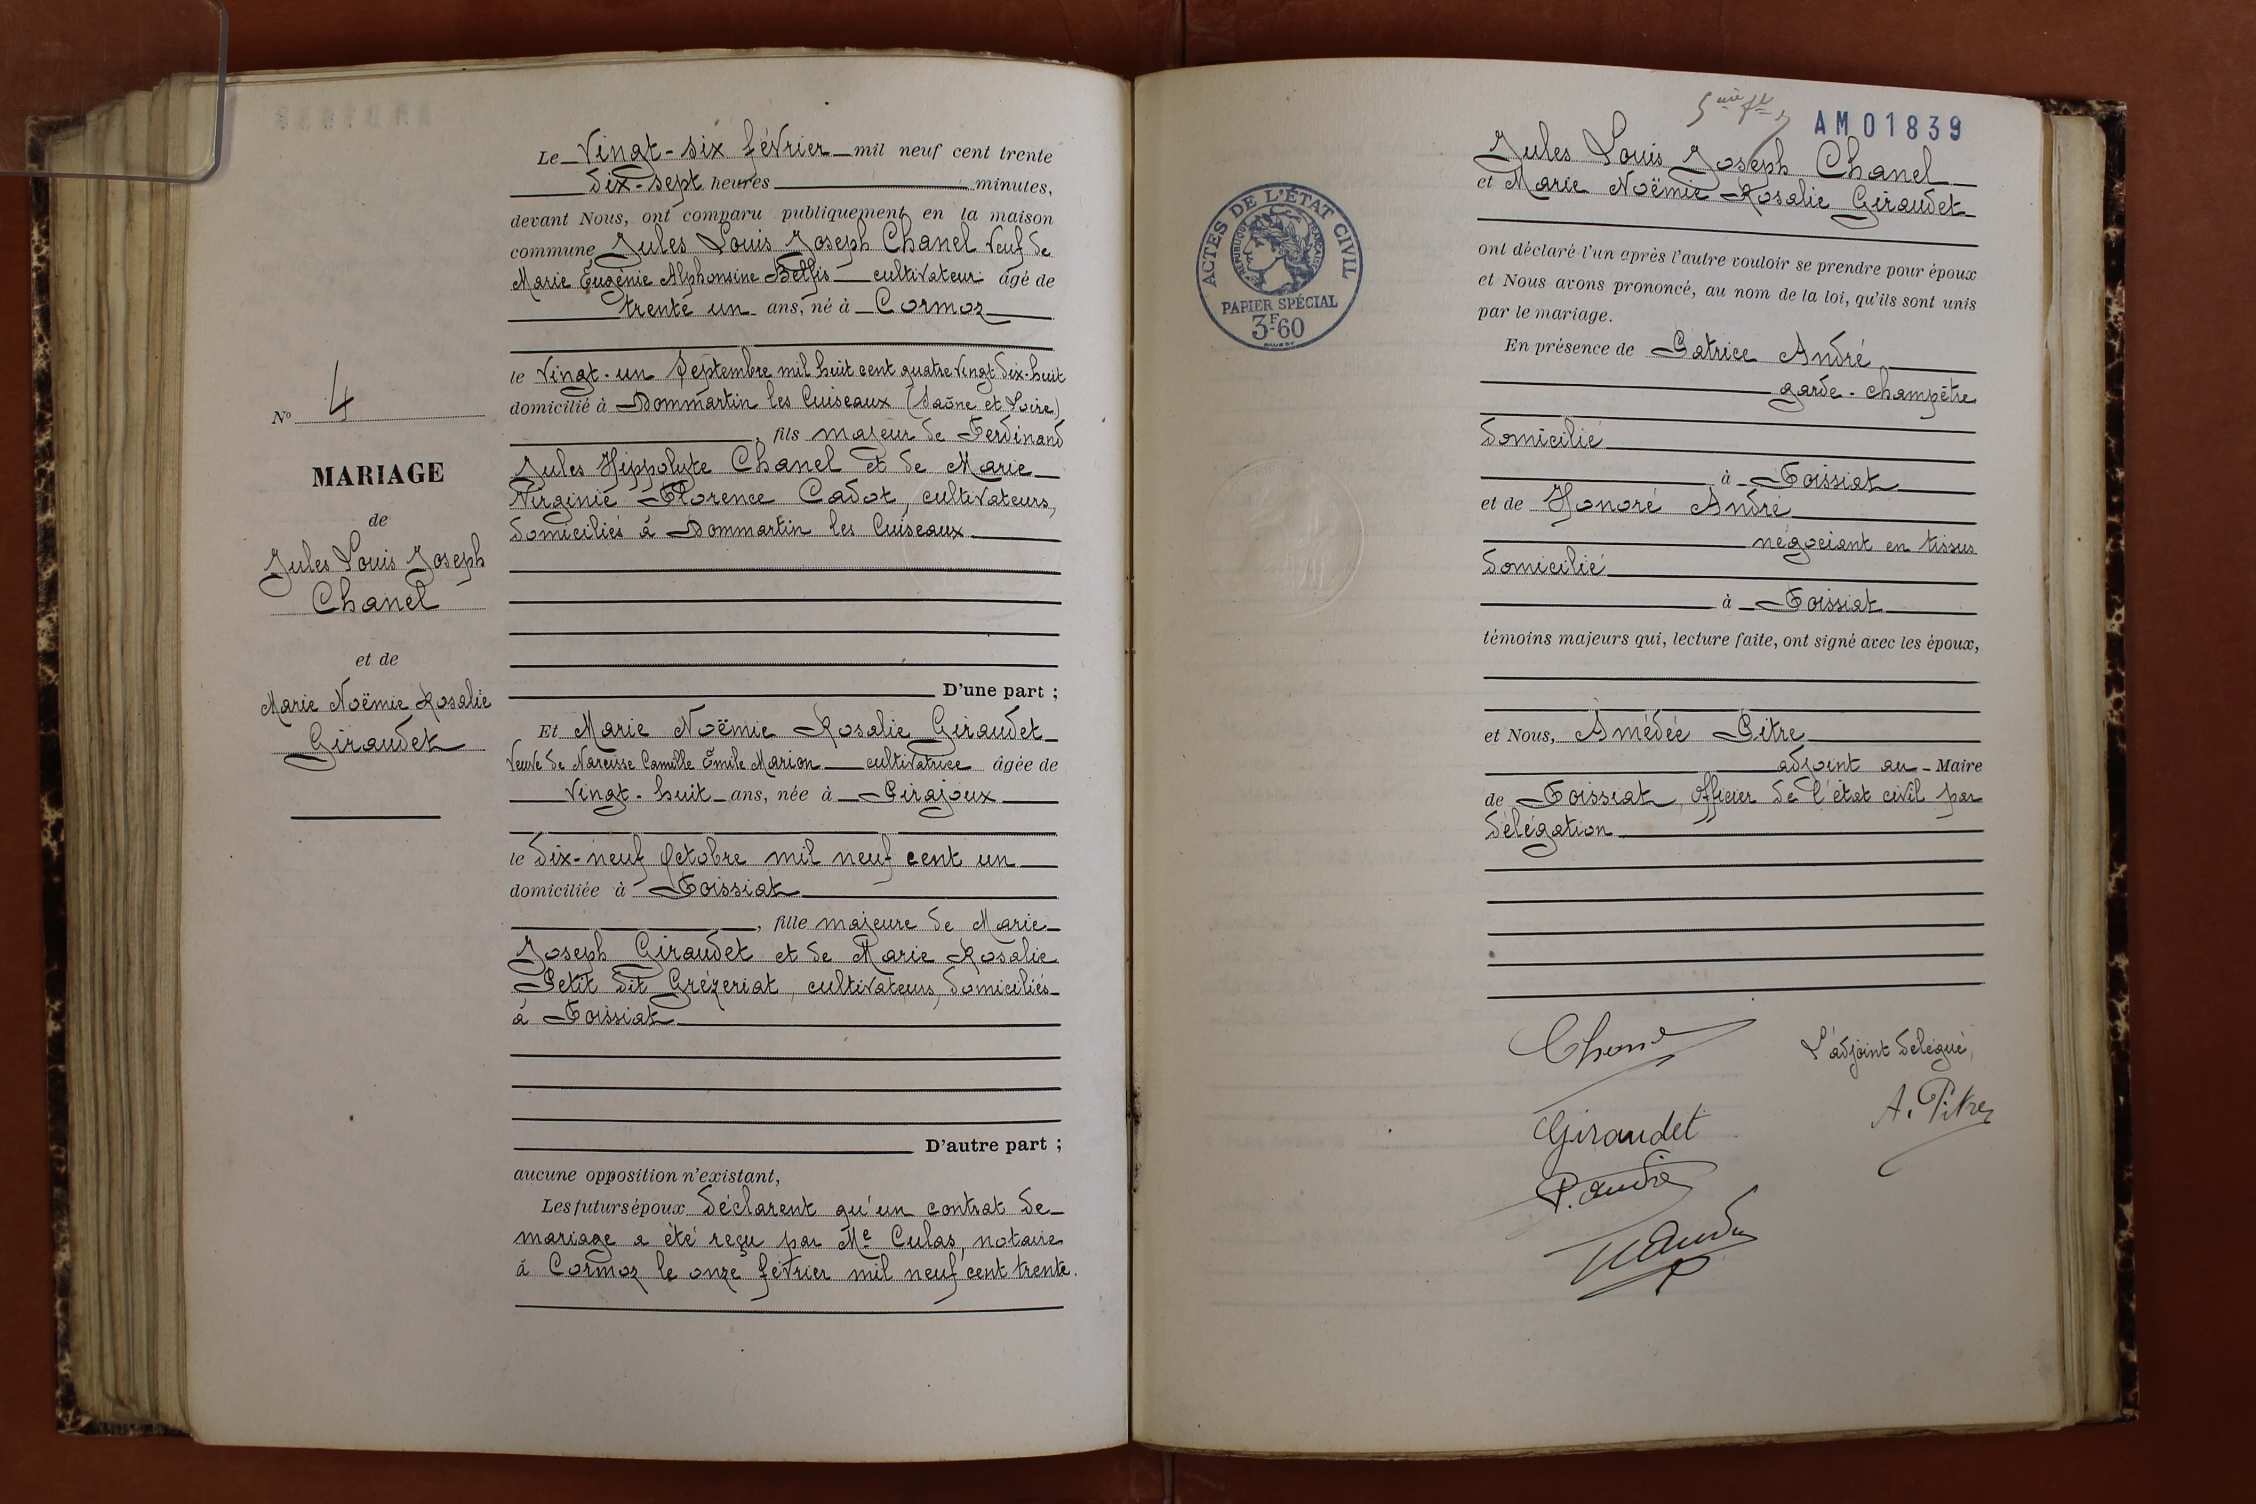 Le Vingt-six février mil neuf cent trente
dix-sept heures minutes,
devant Nous, ont comparu publiquement en la maison
commune Jules Louis Joseph Chanel veuf de
Marie Eugénie Alphonsine cultivateur âgé de
trente un ans, né à Cormoz
le vingt-un Septembre mil huit cent quatre vingt dix-huit
domicilié à Dommartin les Cuiseaux (Saône et Loire)
, fils majeur de Ferdinand
Jules Hippolyte Chanel et de Marie
Virginie Florence Cadot, cultivateurs,
domiciliés à Dommartin les Cuiseaux
D'une part ;
Et Marie Noëmie Rosalie Giraudet
veuve de Narcisse Camille Émile Marion cultivatrice âgée de
vingt-huit ans, née à Pirajoux
le dix-neuf Octobre mil neuf cent un
domiciliée à Foissiat
, fille majeure de Marie
Joseph Giraudet et de Marie Rosalie
Petit dit Grézeriat, cultivateurs, domiciliés
à Foissiat
D'autre part ;
aucune opposition n'existant,
Les futurs époux déclarent qu'un contrat de
mariage a été reçu par Me Culas, notaire
à Cormoz le onze février mil neuf cent trente.
No 4
MARIAGE
de
Jules Louis Joseph
Chanel
et de
Marie Noëmie Rosalie
Giraudet
AM01839
ACTES DE L'ÉTAT CIVIL
RÉPUBLIQUE FRANÇAISE
PAPIER SPÉCIAL
3F60
Jules Louis Joseph Chanel
et Marie Noëmie Rosalie Giraudet
ont déclaré l'un après l'autre vouloir se prendre pour époux
et Nous avons prononcé, au nom de la loi, qu'ils sont unis
par le mariage.
En présence de Patrice André
garde-champêtre
domicilié
à Foissiat
et de Honoré André
négociant en tissus
domicilié
à Foissiat
témoins majeurs qui, lecture faite, ont signé avec les époux,
et Nous, Amédée Pitre
adjoint au Maire
de Foissiat, Officier de l'état civil par
délégation
Chanel
L'adjoint délégué,
A. Pitre
Giraudet
P. andré
H André